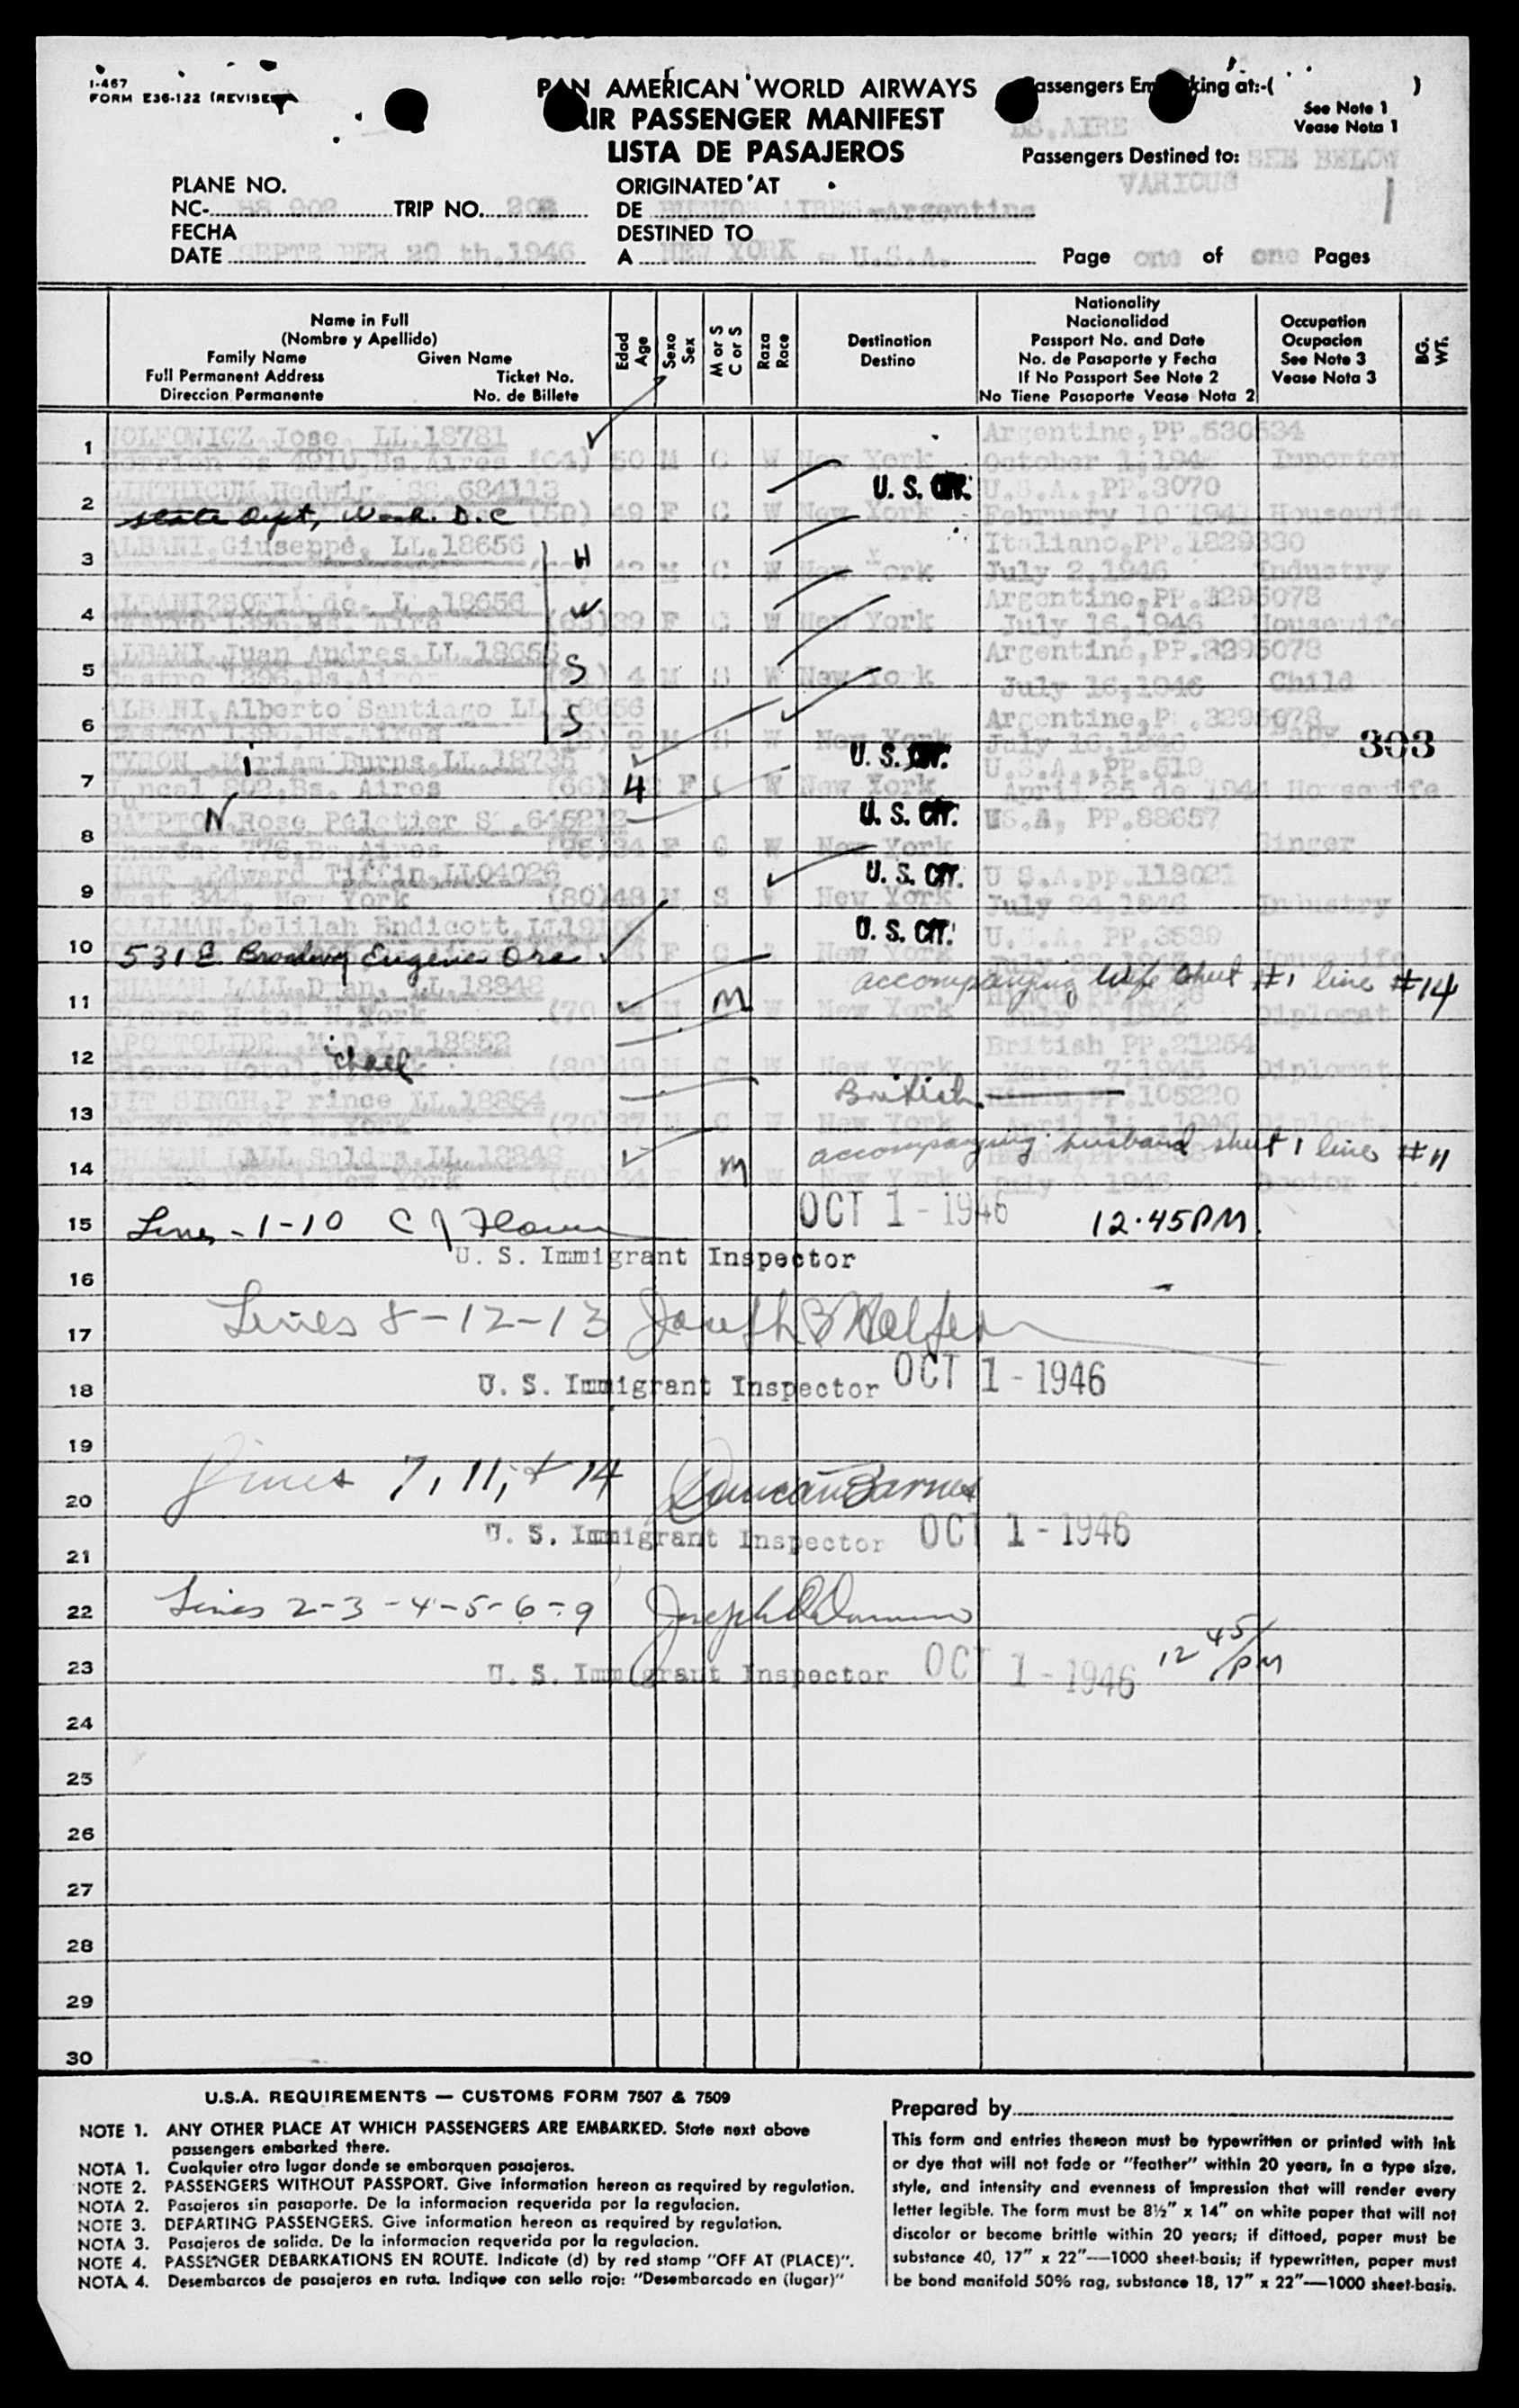 I-467
FORM E36-122 (REVISED)
PAN AMERICAN WORLD AIRWAYS
AIR PASSENGER MANIFEST
LISTA DE PASAJEROS
Passengers Embarking at:-( )
See Note 1
Vease Nota 1
BS.AIRE
Passengers Destined to: SEE BELOW
VARIOUS
PLANE NO.
NC- 88 902 TRIP NO.
ORIGINATED AT
DE BUENOS AIRES -Argentina
FECHA
DATE SEPTE BER 20 th,1946
DESTINED TO
A NEW YORK - U.S.A.
Page one of one Pages
Name in Full
(Nombre y Apellido)
Family Name Given Name
Full Permanent Address Ticket No.
Direccion Permanente No. de Billete
Edad
Age
Sexo
Sex
M or S
C or S
Raza
Race
Destination
Destino
Nationality
Nacionalidad
Passport No. and Date
No. de Pasaporte y Fecha
If No Passport See Note 2
No Tiene Pasaporte Vease Nota 2
Occupation
Ocupacion
See Note 3
Vease Nota 3
BG.
WT.
1 WOLFOWICZ Jose LL.18781 Argentine,PP.530534
50 M C W New York October 1,194 Importer
2 SS.684113 U.S. CIT. U.S.A.,PP.3070
State Dept, Wash. D.C 49 F C W New York February 10 194 Housewife
3 ALBANI,Giuseppe, LL.18656 H Italiano,PP.1829330
M C W New York July 2,1946 Industry
4 LL.18656 W Argentine,PP.3295078
Castro 1396,Bs. Aire (63)39 F C W New York July 16,1946 Housewife
5 ALBANI,Juan Andres LL.18656 S Argentine,PP.3295078
Castro 1396,Bs.Aires 4 M S W New York July 16,1946 Child
6 ALBANI,Alberto Santiago LL.18656 S Argentine,P .3295078
Castro 1396,Bs.Aires 3 M S W New York July 16,1946 Baby
303
7 TYSON ,Miriam Burns,LL.18735 i U.S. CIT. U.S.A.,PP.519
Bs. Aires (66) 4 F C W New York April 25 de 194 Housewife
8 BAMPTON,Rose Peletier S .645212 N U.S. CIT. US.A, PP.88657
776,Bs.Aires (98)34 F C W New York Singer
9 HART ,Edward Tiffin,LL04026 U.S. CIT. U S.A.pp.118021
West 34 , New York (80)48 M S W New York July 24,1946 Industry
10 KALLMAN,Delilah Endicott, U.S. CIT. U.S.A. PP.3539
531 E. Broadway Eugene Ore F C New York Housewife
11 CHAMAN LALL,D an, LL.18848 accompanying wife sheet #1 line #14
Pierre Hotel N.York M M W New York July 9,1946 Diplomat
12 APOSTOLIDE ,M.D,LL.18852 ichael British PP.21254
Pierre Hotel,N. (80)48 M C W New York Mars 7,1945 Diplomat
13 JIT SINGH,P rince LL.18854 British PP.105220
N.York (70)37 M C W New York April 1946
14 CHAMAN LALL LL.18848 accompanying husband sheet 1 line #11
Pierre Hotel,New York F M W New York July 9 1946 Doctor
15 Lines - 1-10 OCT 1 - 1946 12.45PM.
U. S. Immigrant Inspector
16
17 Lines 8-12-13 Joseph B Halfern
18 U. S. Immigrant Inspector OCT 1 - 1946
19
20 Lines 7, 11, + 14 Duncan Barnes
U. S. Immigrant Inspector OCT 1 - 1946
21
22 Lines 2-3-4-5-6-9
23 U. S. Immigrant Inspector OCT 1 - 1946 12 45/PM
24
25
26
27
28
29
30
U.S.A. REQUIREMENTS — CUSTOMS FORM 7507 & 7509
NOTE 1. ANY OTHER PLACE AT WHICH PASSENGERS ARE EMBARKED. State next above
passengers embarked there.
NOTA 1. Cualquier otro lugar donde se embarquen pasajeros.
NOTE 2. PASSENGERS WITHOUT PASSPORT. Give information hereon as required by regulation.
NOTA 2. Pasajeros sin pasaporte. De la informacion requerida por la regulacion.
NOTE 3. DEPARTING PASSENGERS. Give information hereon as required by regulation.
NOTA 3. Pasajeros de salida. De la informacion requerida por la regulacion.
NOTE 4. PASSENGER DEBARKATIONS EN ROUTE. Indicate (d) by red stamp "OFF AT (PLACE)".
NOTA 4. Desembarcos de pasajeros en ruta. Indique con sello rojo: "Desembarcado en (lugar)"
Prepared by
This form and entries thereon must be typewritten or printed with ink
or dye that will not fade or "feather" within 20 years, in a type size,
style, and intensity and evenness of impression that will render every
letter legible. The form must be 8½" x 14" on white paper that will not
discolor or become brittle within 20 years; if dittoed, paper must be
substance 40, 17" x 22"—1000 sheet-basis; if typewritten, paper must
be bond manifold 50% rag, substance 18, 17" x 22"—1000 sheet-basis.